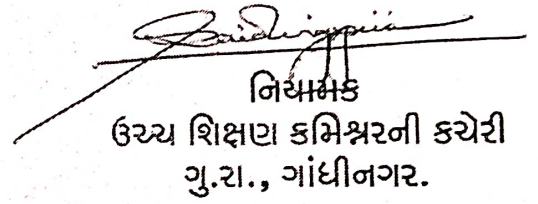 નિયામક
ઉચ્ચ શિક્ષણ કમિશ્નરની કચેરી
ગુ.રા., ગાંધીનગર.